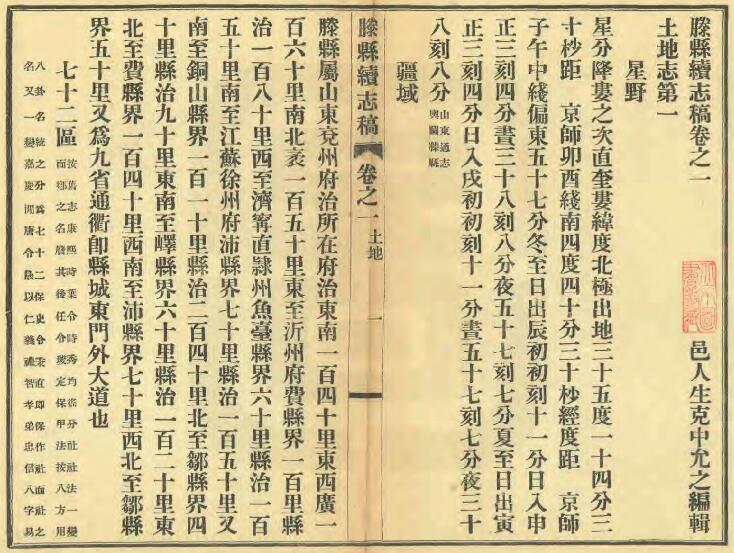 滕縣續志稿卷之一 邑人生克中允之編輯
土地志第一
星野
星分降婁之次直奎婁緯度北極出地三十五度一十四分三
十杪距 京師卯酉綫南四度四十分三十杪經度距 京師
子午中綫偏東五十七分冬至日出辰初初刻十一分日入申
正三刻四分晝三十八刻八分夜五十七刻七分夏至日出寅
正三刻四分日入戌初初刻十一分晝五十七刻七分夜三十
八刻八分
山東通志
輿圖滕縣
疆域
滕縣續志稿 卷之一 土地 一
滕縣屬山東兗州府治所在府治東南一百四十里東西廣一
百六十里南北袤一百五十里東至沂州府費縣界一百里縣
治一百八十里西至濟寧直隸州魚臺縣界六十里縣治一百
五十里南至江蘇徐州府沛縣界七十里縣治一百五十里又
南至銅山縣界一百一十里縣治二百四十里北至鄒縣界四
十里縣治九十里東南至嶧縣界六十里縣治一百二十里東
北至費縣界一百四十里西南至沛縣界七十里西北至鄒縣
界五十里又爲九省通衢卽縣城東門外大道也
七十二區
按舊志康熙時葉令時秀均徭分社社法一變
而鄉之名廢其後任令璣定保甲法按八方用
八卦名統之分爲七十二保史令秉直卽保作社而社之
名又一變嘉慶間唐令以仁義禮智孝弟忠信八字易